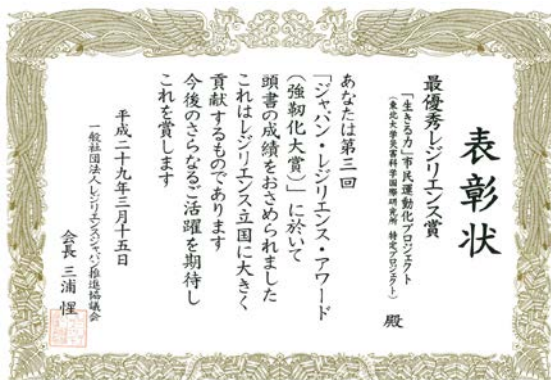 表彰状
最優秀レジリエンス賞
「生きる力」市民運動化プロジェクト
(東北大学災害科学国際研究所 特定プロジェクト)
殿
あなたは第三回
「ジャパン・レジリエンス・アワード
(強靭化大賞)」に於いて
頭書の成績をおさめられました
これはレジリエンス立国に大きく
貢献するものであります
今後のさらなるご活躍を期待し
これを賞します
平成二十九年三月十五日
一般社団法人レジリエンスジャパン推進協議会
会長 三浦 惺